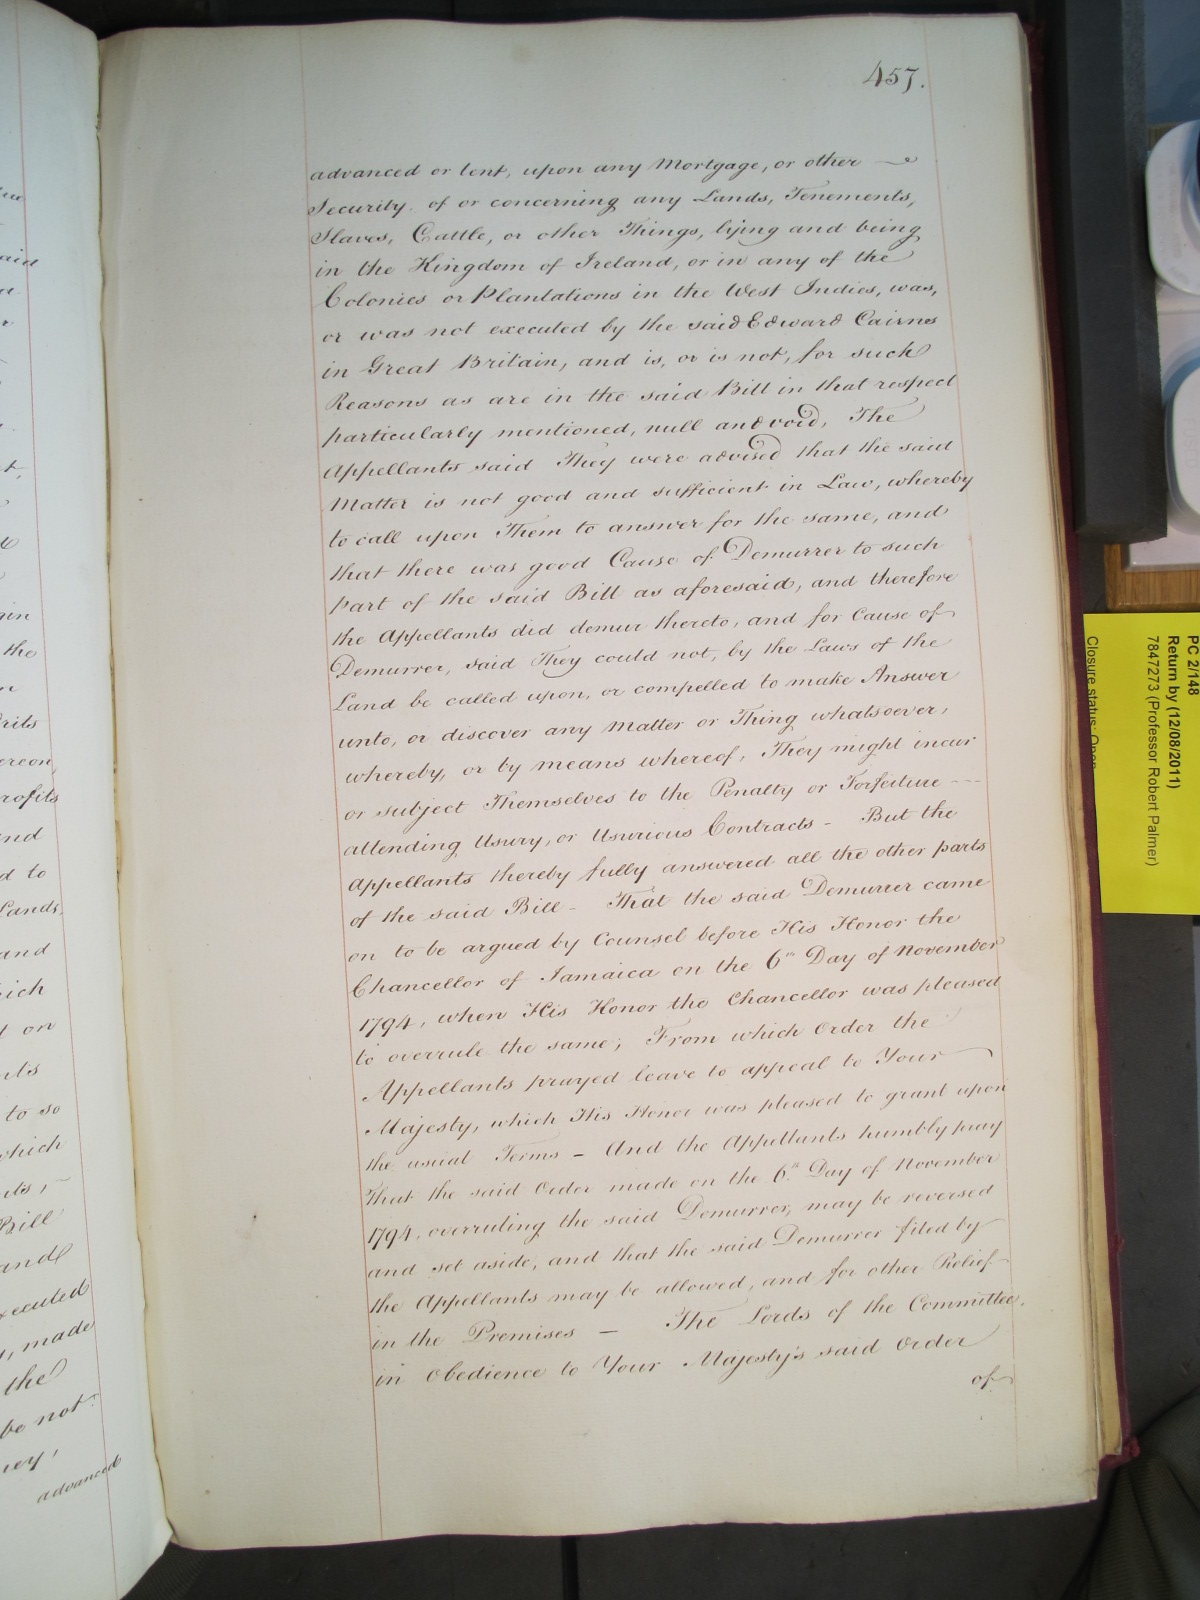 457.
advanced or lent, upon any Mortgage, or other
Security of or concerning any Lands, Tenements,
Slaves, Cattle, or other Things, lying and being
in the Kingdom of Ireland, or in any of the
Colonies or Plantations in the West Indies, was,
or was not executed by the said Edward Cairnes
in Great Britain, and is, or is not, for such
Reasons as are in the said Bill in that respect
particularly mentioned, null and void, The
Appellants said They were advised that the said
Matter is not good and sufficient in Law, whereby
to call upon Them to answer for the same, and
that there was good Cause of Demurrer to such
part of the said Bill as aforesaid, and therefore
the Appellants did demur thereto, and for Cause of
Demurrer, said They could not, by the Laws of the
Land be called upon, or compelled to make Answer
unto, or discover any Matter or Thing whatsoever,
whereby, or by means whereof, They might incur
or subject Themselves to the Penalty or Forfeiture ---
attending Usury, or Usurious Contracts - But the
Appellants thereby fully answered all the other parts
of the said Bill - That the said Demurrer came
on to be argued by Counsel before His Honor the
Chancellor of Jamaica on the 6th Day of November
1794, when His Honor the Chancellor was pleased
to overrule the same; From which Order the
Appellants prayed leave to appeal to Your
Majesty, which His Honor was pleased to grant upon
the usual Terms - And the Appellants humbly pray
That the said Order made on the 6th Day of November
1794, overruling the said Demurrer, may be reversed
and set aside, and that the said Demurrer filed by
the Appellants may be allowed, and for other Relief
in the Premises - The Lords of the Committee,
in Obedience to Your Majesty's said Order
of
said
t,
gin
the
ereon,
rofits
and
d to
Lands,
and
ich
t on
nts
to so
which
nts,
Bill
and
xecuted
, made
the
be not
ney,
advanced
PC 2/148
Return by (12/08/2011)
7847273 (Professor Robert Palmer)
Closure status: Open